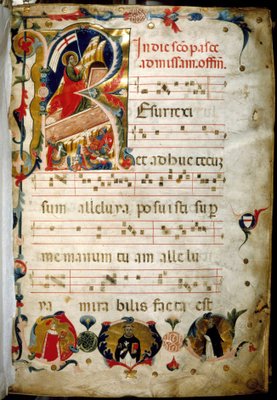 In die scō pasce
ad missam. offm̄.
R Esurrexi
et ad huc tecuz
sum alleluya posuisti sup
me manum tu am alle lu
ya mira bilis facta est